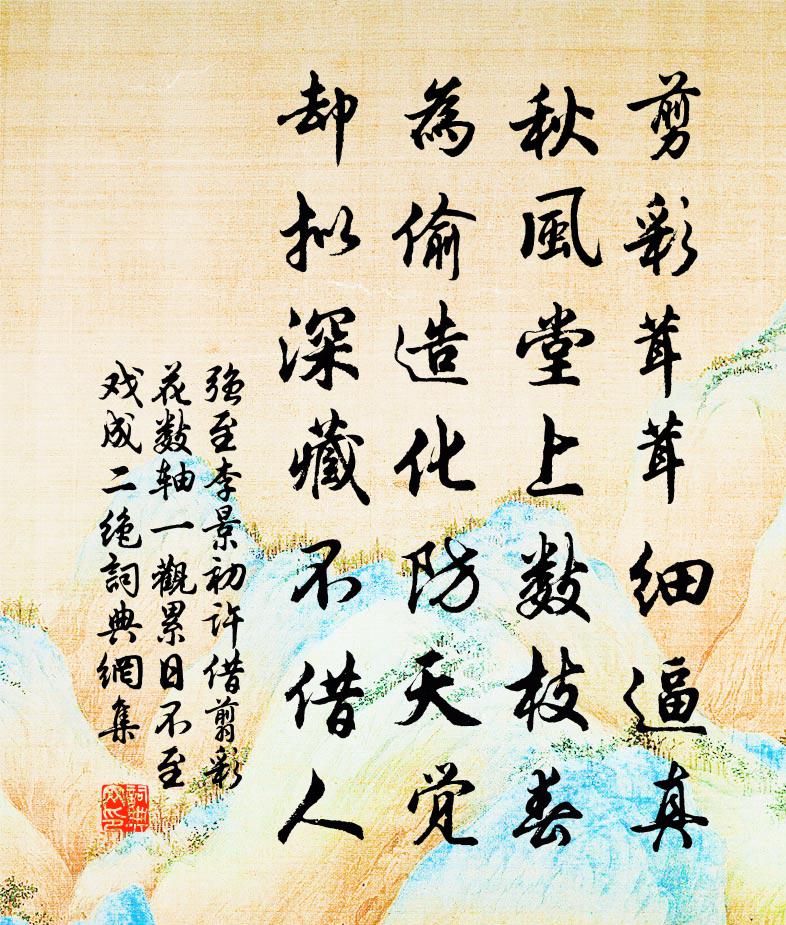 剪彩茸茸细逼真
秋風堂上数枝春
為偷造化防天觉
却拟深藏不借人
强至李景初许借剪彩
花数轴一觀累日不至
戏成二绝詞典網集